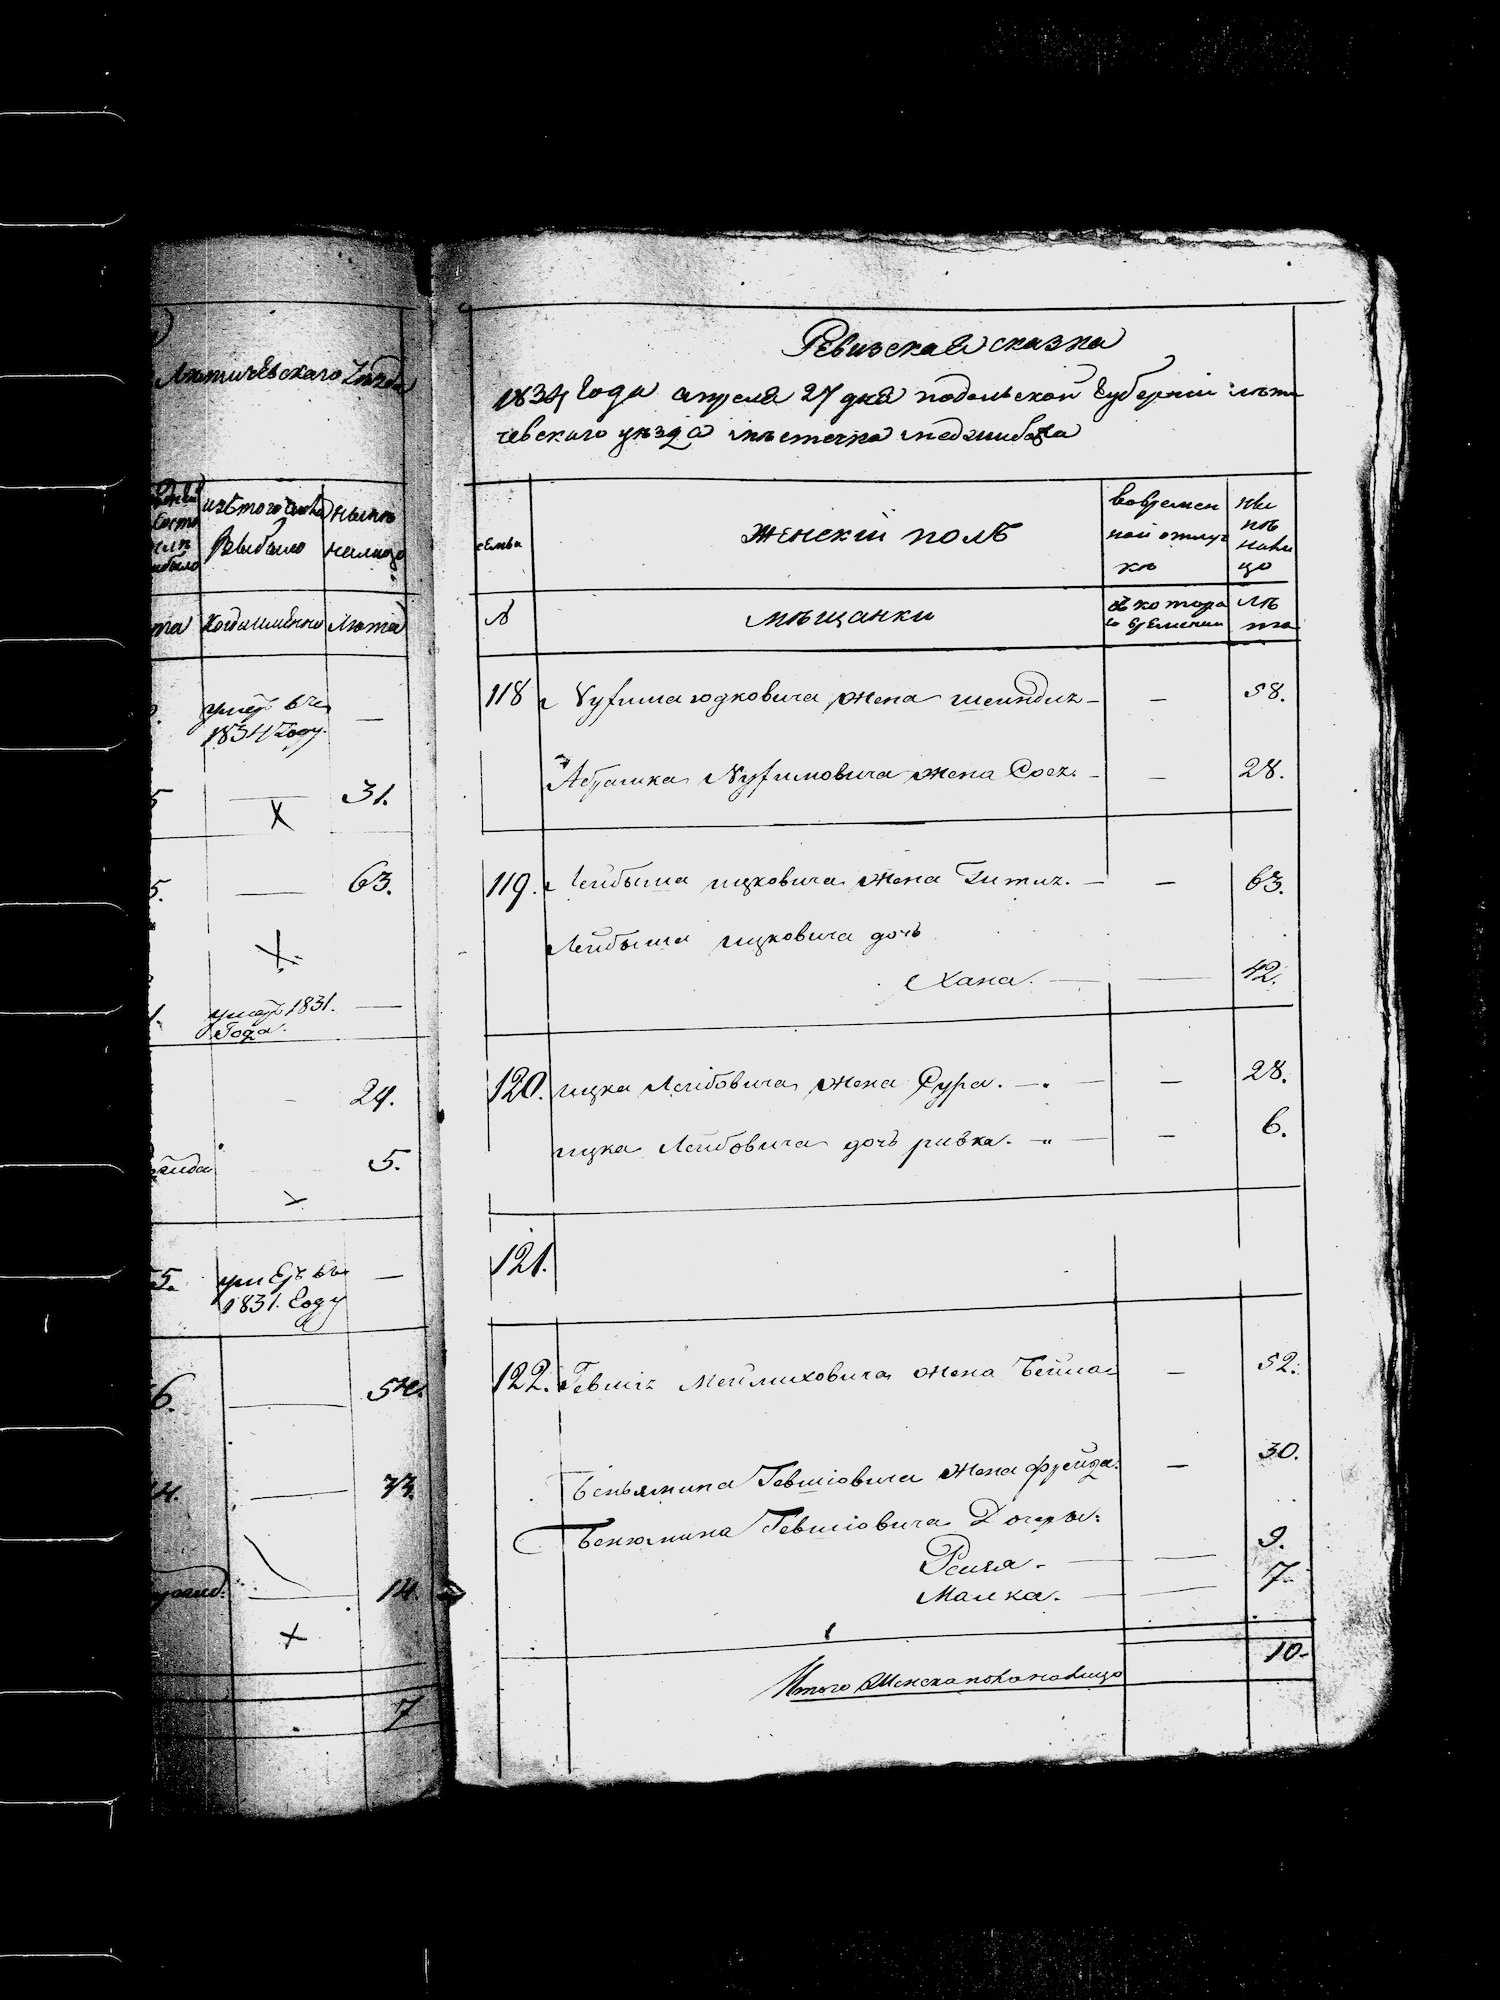 Лѣтичевского Уѣзда
изъ того числа
выбыло
нынѣ
налицо
когда именно
лѣта
умеръ въ
1834 году.
—
31.
63.
умеръ 1831.
Года.
—
24.
5.
5.
умеръ въ
1831. Году
—
6.
54.
33.
14.
7
Ревизская сказка
1834 Года апреля 27 дня подольской Губерніи лѣти
чевского уѣзда мѣстечка медзибожа
семьи
Женскій полъ
вовремен
ной отлуч
кѣ
ны
нѣ
нали
цо
№
мѣщанки
съ котора
го времени
лѣ
та
118
юдковича жена шеиндля —
—
58.
Абрамка жена —
—
28.
119.
Лейбыша ицковича жена Гитля. —
—
63.
Лейбыша ицковича дочь
Хана. —
—
42.
120.
ицка Лейбовича жена Сура. —
—
28.
ицка Лейбовича дочь ривка. —
—
6.
121.
122.
Гевшія Мейлиховича жена Бейла
—
52.
Беньямина Гевшіовича жена фрейда.
—
30.
Бенюмина Гевшіовича Дочеры:
Рейзя. —
—
9.
Малка. —
—
7.
Итого женска пола налицо
10.